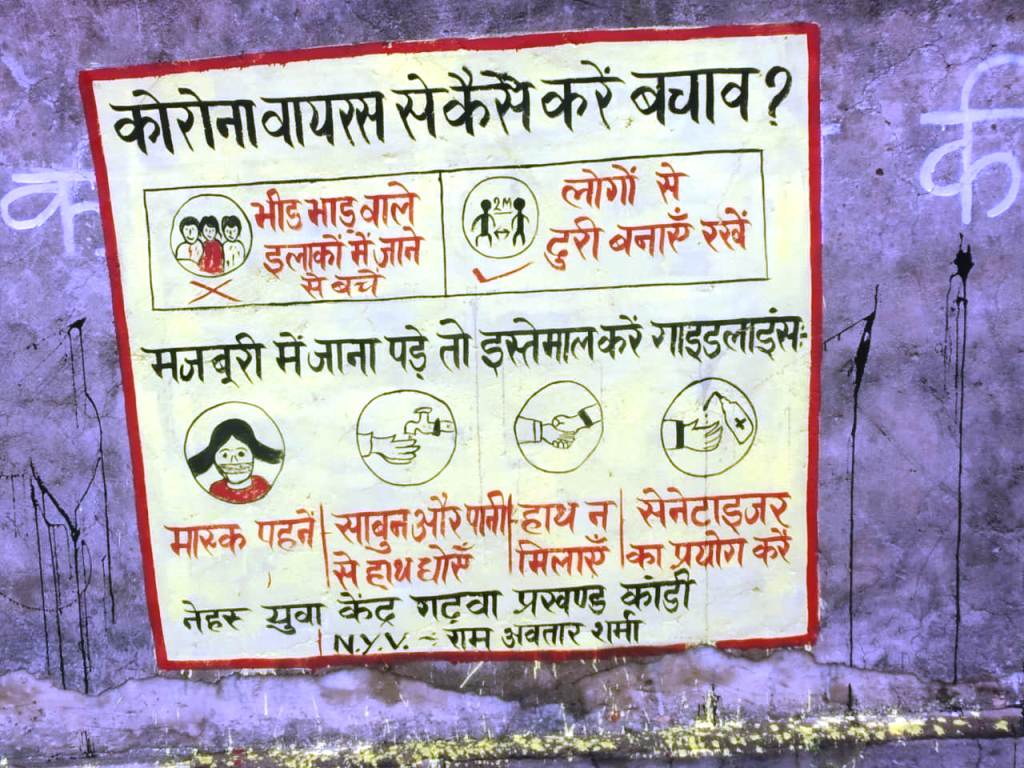 कोरोना वायरस से कैसे करें बचाव?
भीड भाड़ वाले
इलाकों में जाने
से बचें
2M
लोगों से
दुरी बनाएँ रखें
मजबूरी में जाना पड़े तो इस्तेमाल करें गाइडलाइंस:-
मास्क पहनें
साबुन और पानी
से हाथ धोएँ
हाथ न
मिलाएँ
सेनेटाइजर
का प्रयोग करें
नेहरू युवा केंद्र गढ़वा प्रखण्ड कांडी
N.Y.V. - राम अवतार शर्मा